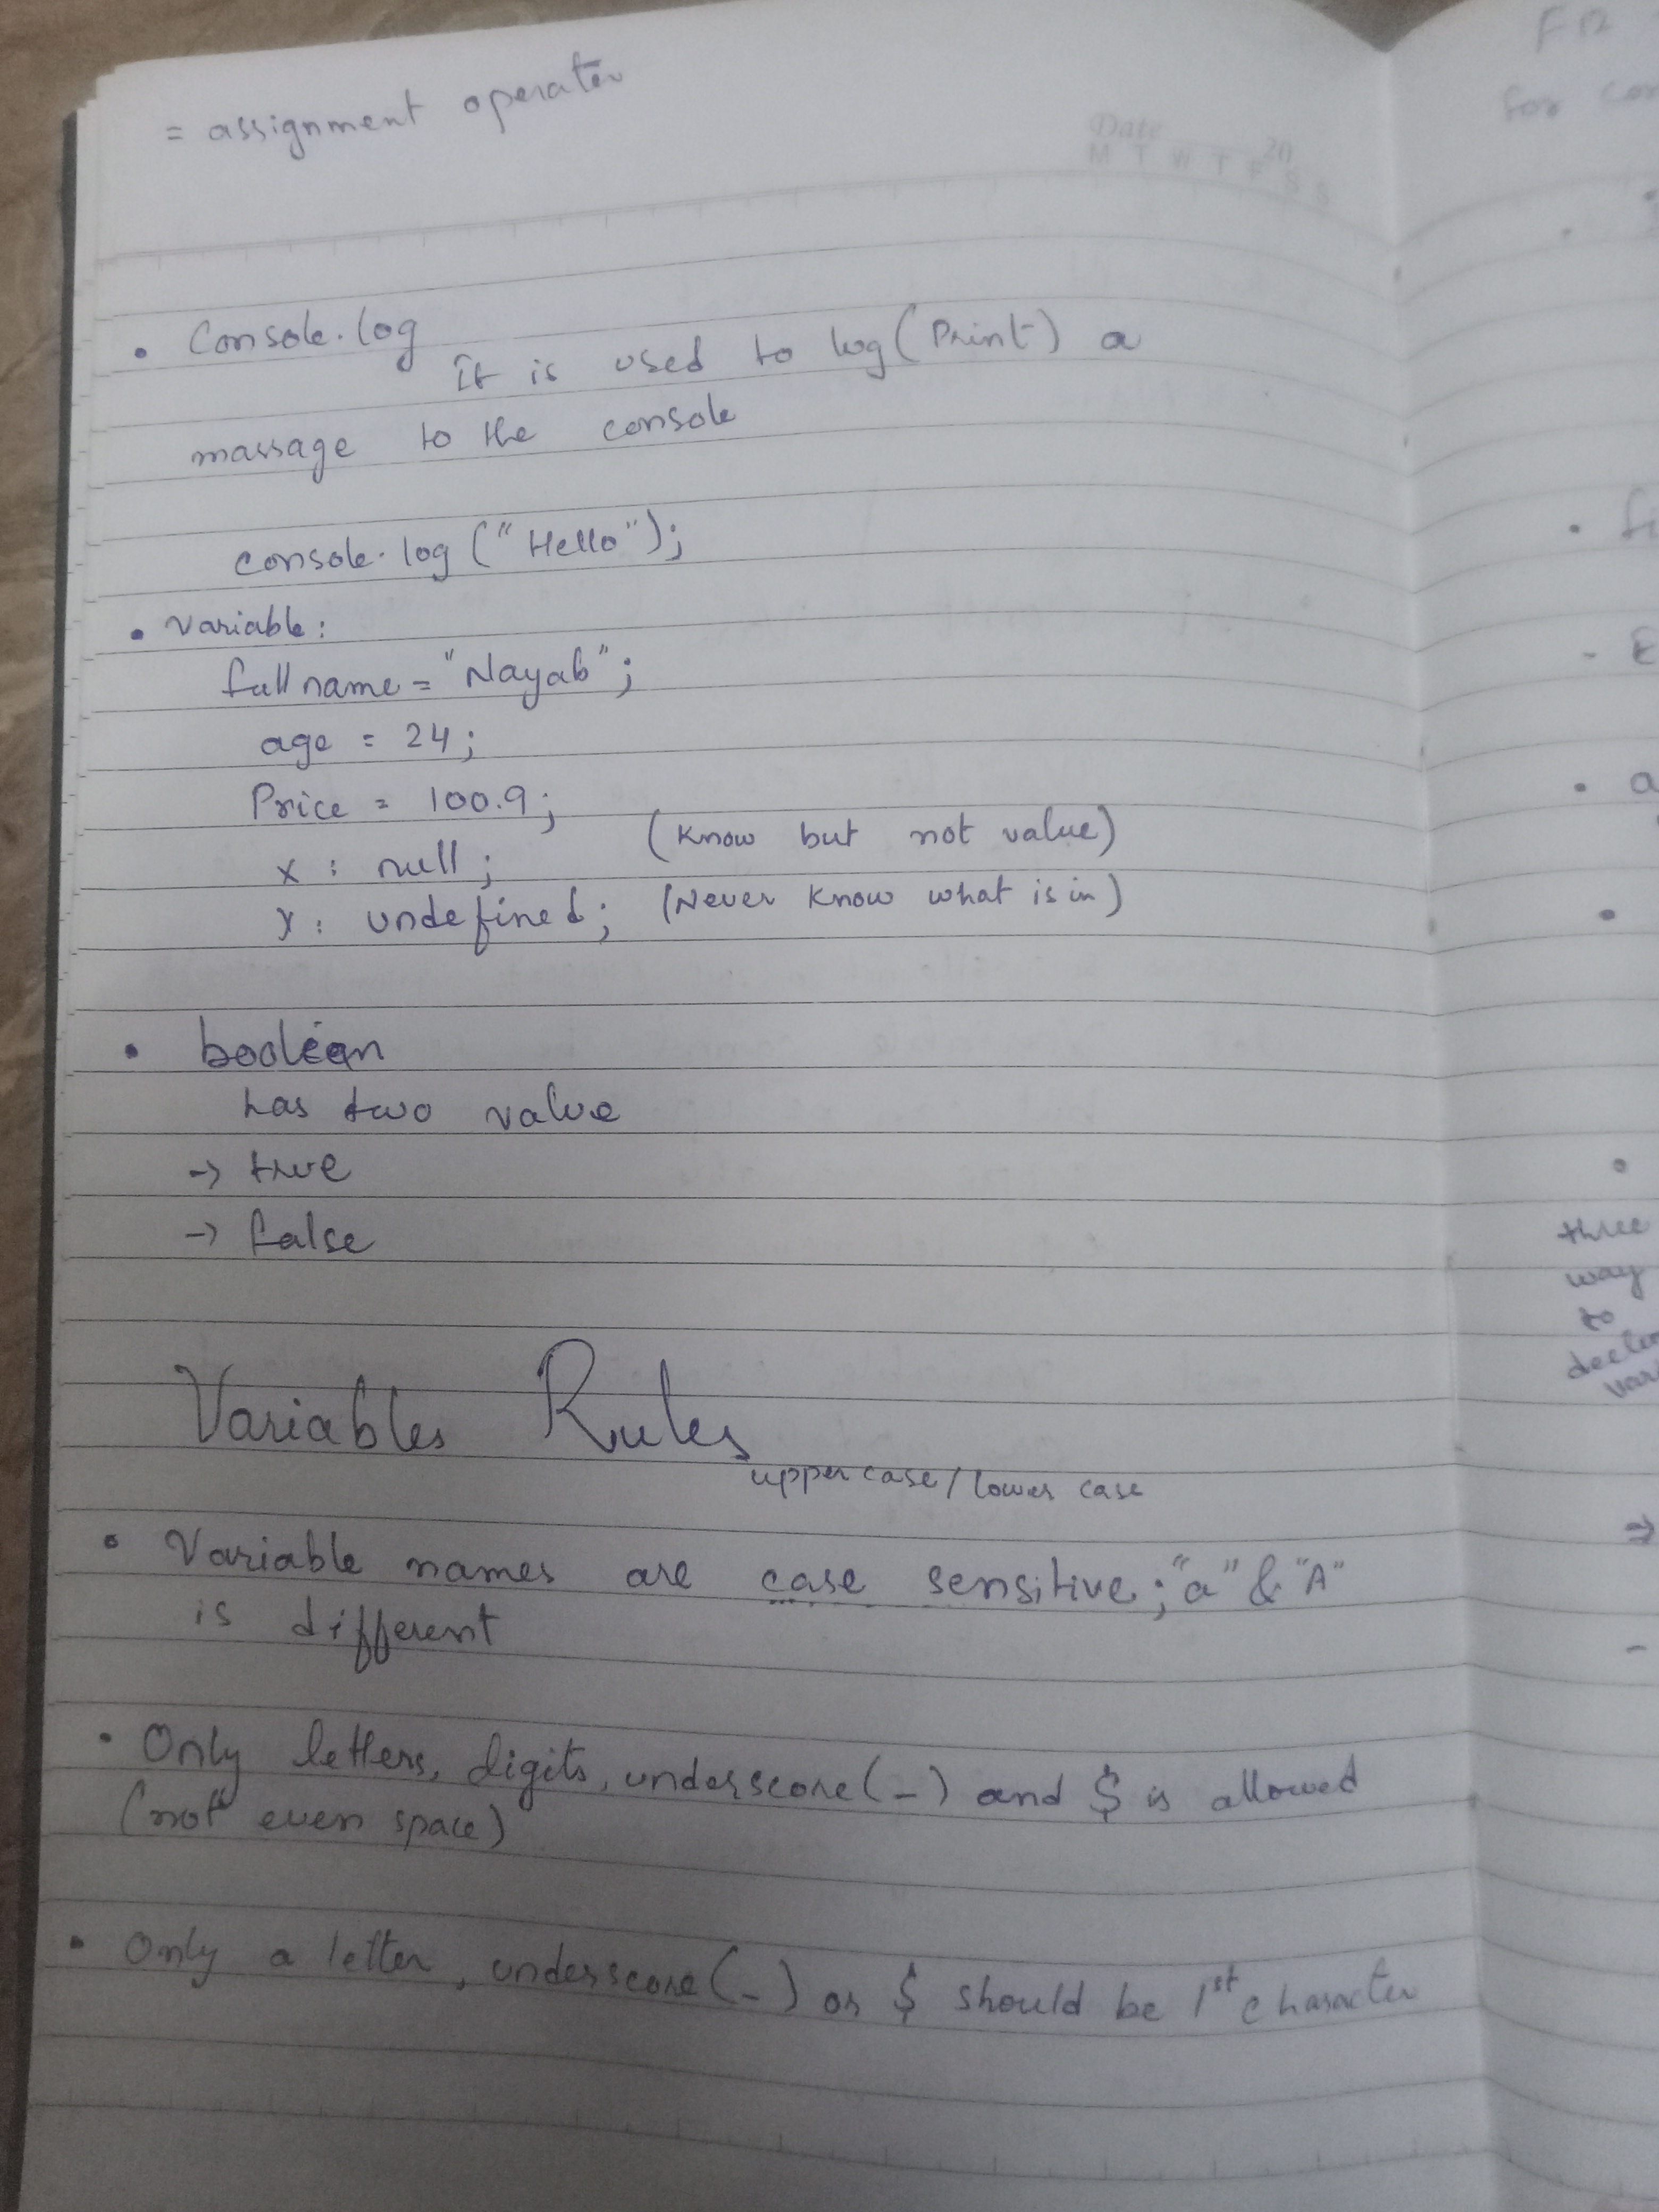 = assignment operator
Date
20
M T W T F S S
• Console.log
It is used to log (Print) a
massage to the console
console.log ("Hello");
• variable:
fullname = "Nayab";
age = 24;
Price = 100.9;
x : null; (Know but not value)
y : undefined; (Never Know what is in)
• boolean
has two value
-> true
-> false
Variables Rules
upper case / lower case
• Variable names are case sensitive; "a" & "A"
is different
• Only letters, digits, underscore (_) and $ is allowed
(not even space)
• Only a letter, underscore (_) or $ should be 1st character
for
three
way
to